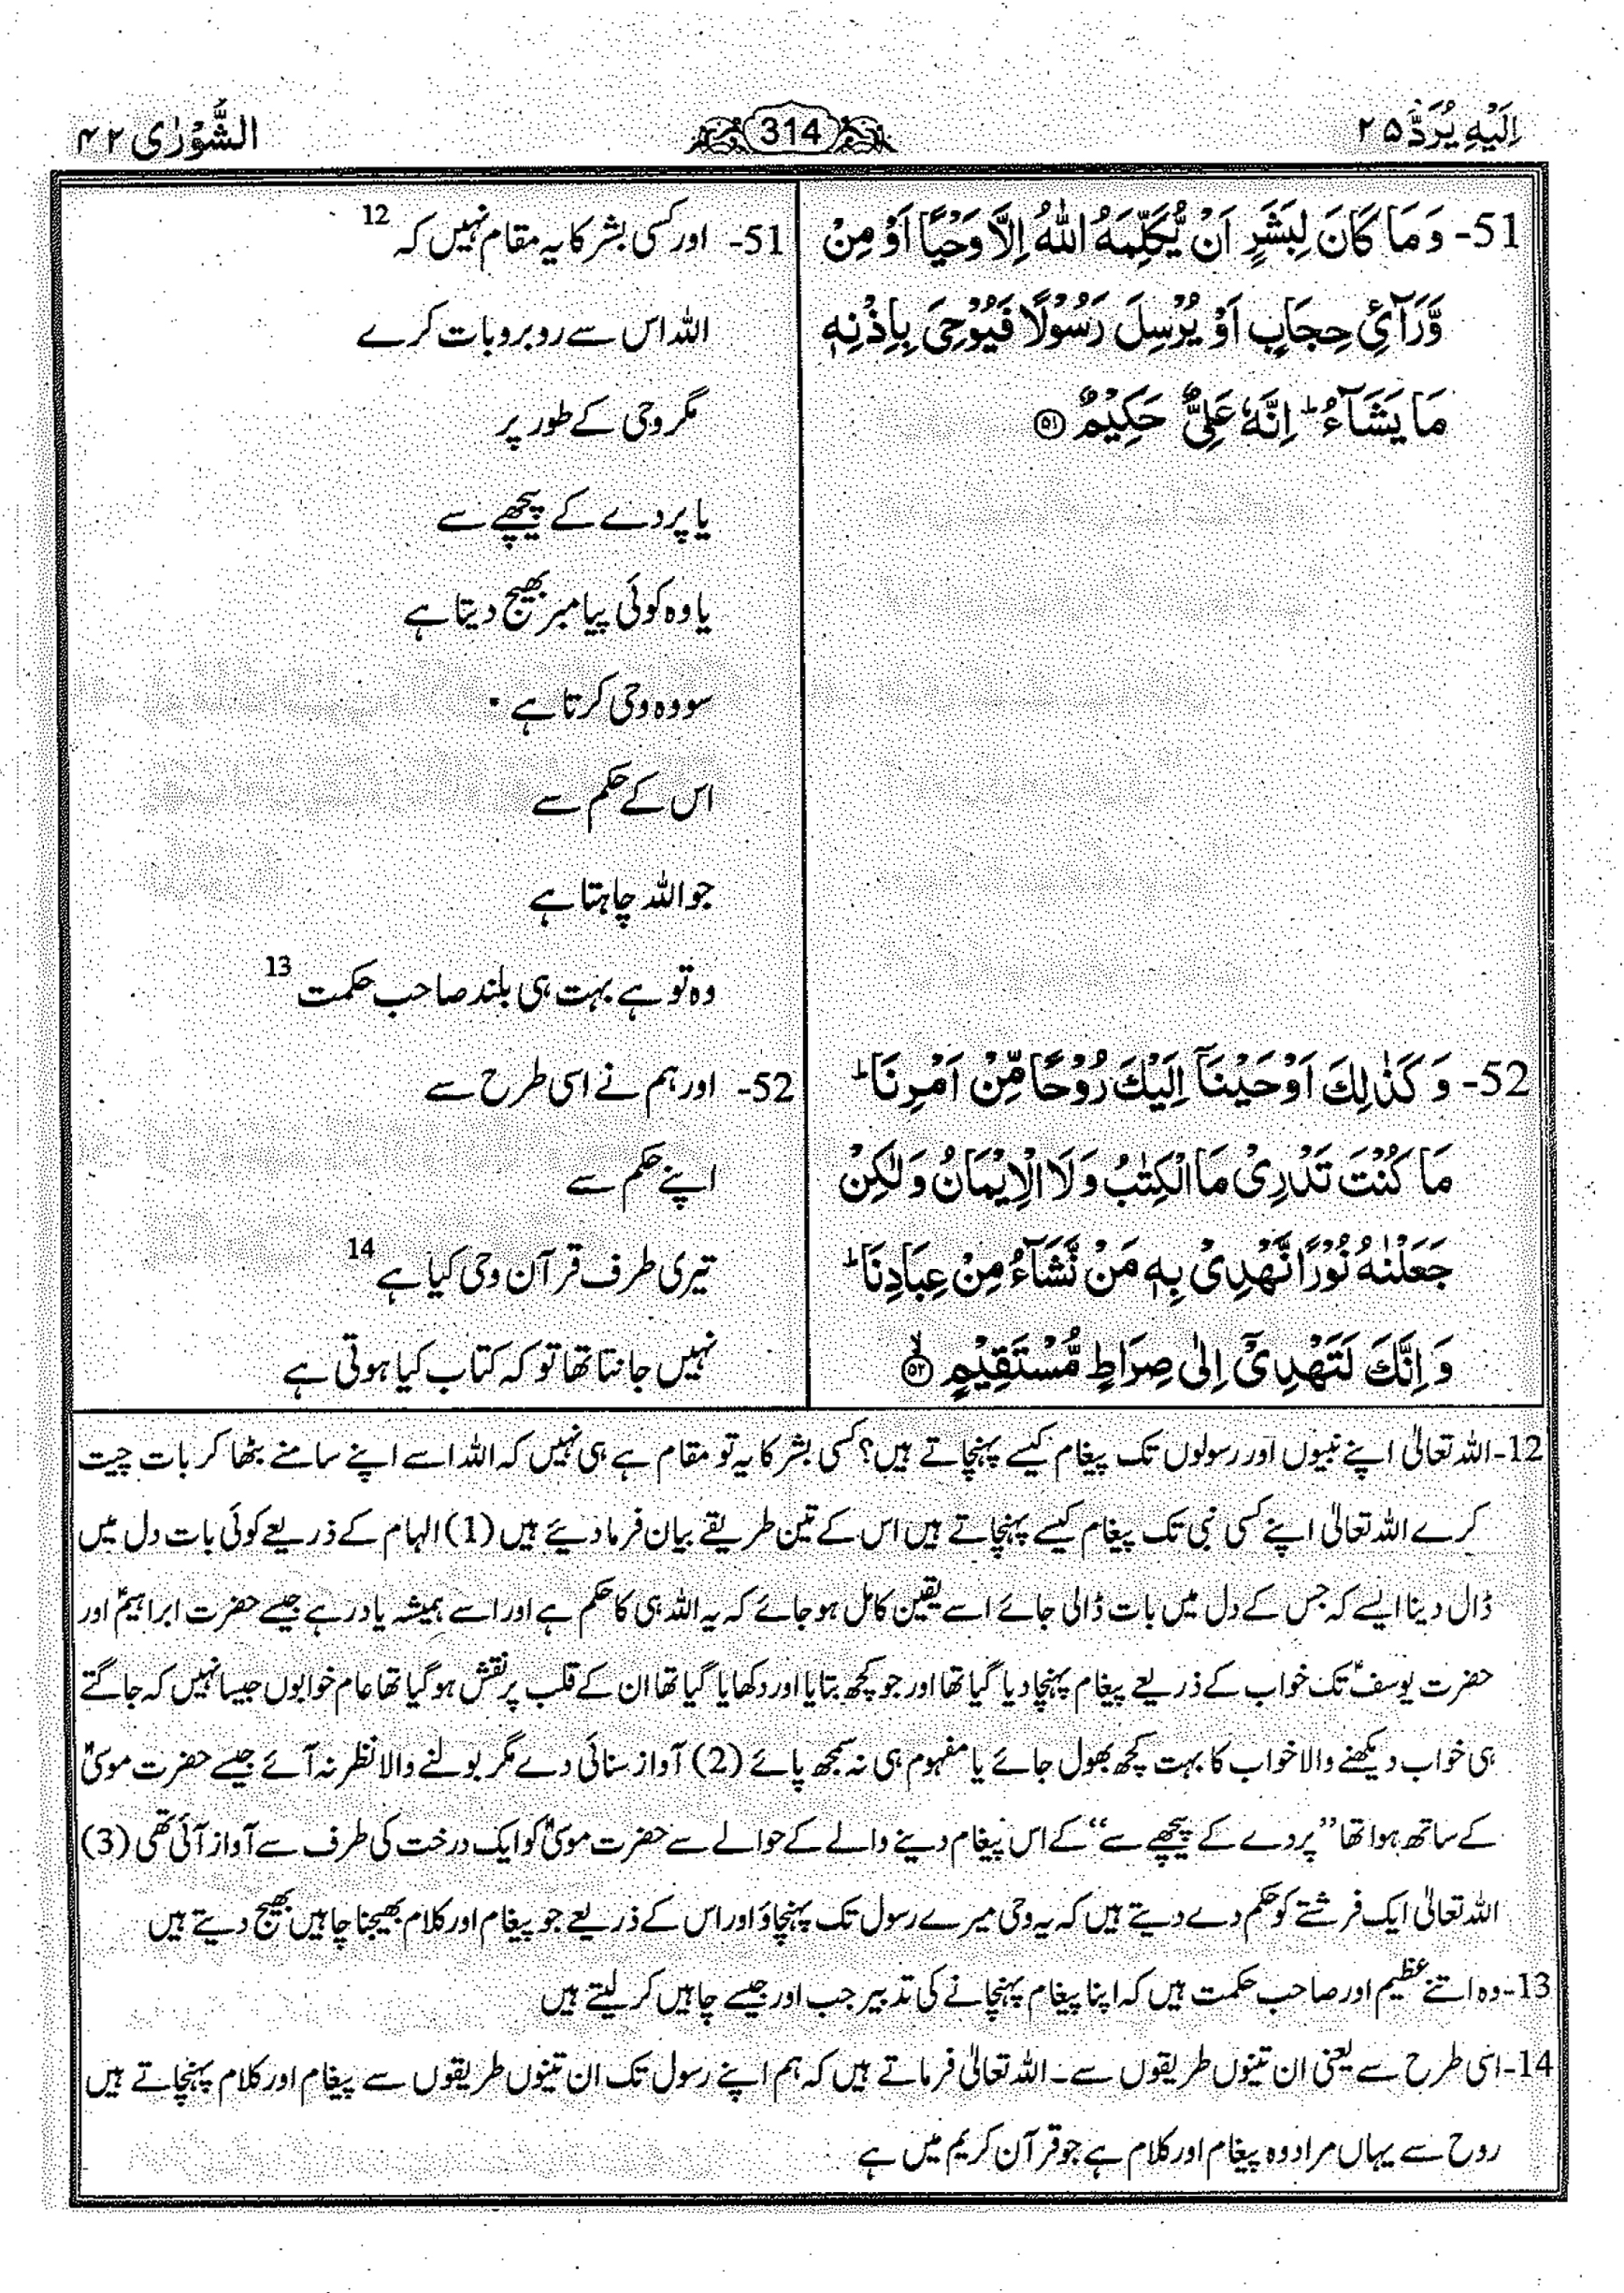 اِلَيْهِ يُرَدُّ ۲۵
314
الشُّوْرٰى ۴۲
51- وَمَا كَانَ لِبَشَرٍ اَنْ يُّكَلِّمَهُ اللّٰهُ اِلَّا وَحْيًا اَوْ مِنْ
وَّرَآئِ حِجَابٍ اَوْ يُرْسِلَ رَسُوْلًا فَيُوْحِيَ بِاِذْنِهٖ
مَا يَشَآءُ ؕ اِنَّهٗ عَلِيٌّ حَكِيْمٌ ۝۵۱
52- وَ كَذٰلِكَ اَوْحَيْنَآ اِلَيْكَ رُوْحًا مِّنْ اَمْرِنَا ؕ
مَا كُنْتَ تَدْرِىْ مَا الْكِتٰبُ وَلَا الْاِيْمَانُ وَلٰكِنْ
جَعَلْنٰهُ نُوْرًا نَّهْدِىْ بِهٖ مَنْ نَّشَآءُ مِنْ عِبَادِنَا ؕ
وَ اِنَّكَ لَتَهْدِىْۤ اِلٰى صِرَاطٍ مُّسْتَقِيْمٍ ۙ۝۵۲
51- اور کسی بشر کا یہ مقام نہیں کہ 12
اللہ اس سے روبرو بات کرے
مگر وحی کے طور پر
یا پردے کے پیچھے سے
یا وہ کوئی پیامبر بھیج دیتا ہے
سو وہ وحی کرتا ہے
اس کے حکم سے
جو اللہ چاہتا ہے
وہ تو ہے بہت ہی بلند صاحب حکمت 13
52- اور ہم نے اسی طرح سے
اپنے حکم سے
تیری طرف قرآن وحی کیا ہے 14
نہیں جانتا تھا تو کہ کتاب کیا ہوتی ہے
12-اللہ تعالیٰ اپنے نبیوں اور رسولوں تک پیغام کیسے پہنچاتے ہیں؟ کسی بشر کا یہ تو مقام ہے ہی نہیں کہ اللہ اسے اپنے سامنے بٹھا کر بات چیت
کرے اللہ تعالیٰ اپنے کسی نبی تک پیغام کیسے پہنچاتے ہیں اس کے تین طریقے بیان فرما دیئے ہیں (1) الہام کے ذریعے کوئی بات دل میں
ڈال دینا ایسے کہ جس کے دل میں بات ڈالی جائے اسے یقین کامل ہو جائے کہ یہ اللہ ہی کا حکم ہے اور اسے ہمیشہ یاد رہے جیسے حضرت ابراہیمؑ اور
حضرت یوسفؑ تک خواب کے ذریعے پیغام پہنچا دیا گیا تھا اور جو کچھ بتایا اور دکھایا گیا تھا ان کے قلب پر نقش ہو گیا تھا عام خوابوں جیسا نہیں کہ جاگتے
ہی خواب دیکھنے والا خواب کا بہت کچھ بھول جائے یا مفہوم ہی نہ سمجھ پائے (2) آواز سنائی دے مگر بولنے والا نظر نہ آئے جیسے حضرت موسیٰؑ
کے ساتھ ہوا تھا ”پردے کے پیچھے سے“ کے اس پیغام دینے والے کے حوالے سے حضرت موسیٰؑ کو ایک درخت کی طرف سے آواز آئی تھی (3)
اللہ تعالیٰ ایک فرشتے کو حکم دے دیتے ہیں کہ یہ وحی میرے رسول تک پہنچاؤ اور اس کے ذریعے جو پیغام اور کلام بھیجنا چاہیں بھیج دیتے ہیں
13-وہ اتنے عظیم اور صاحب حکمت ہیں کہ اپنا پیغام پہنچانے کی تدبیر جب اور جیسے چاہیں کر لیتے ہیں
14-اسی طرح سے یعنی ان تینوں طریقوں سے۔ اللہ تعالیٰ فرماتے ہیں کہ ہم اپنے رسول تک ان تینوں طریقوں سے پیغام اور کلام پہنچاتے ہیں
روح سے یہاں مراد وہ پیغام اور کلام ہے جو قرآن کریم میں ہے